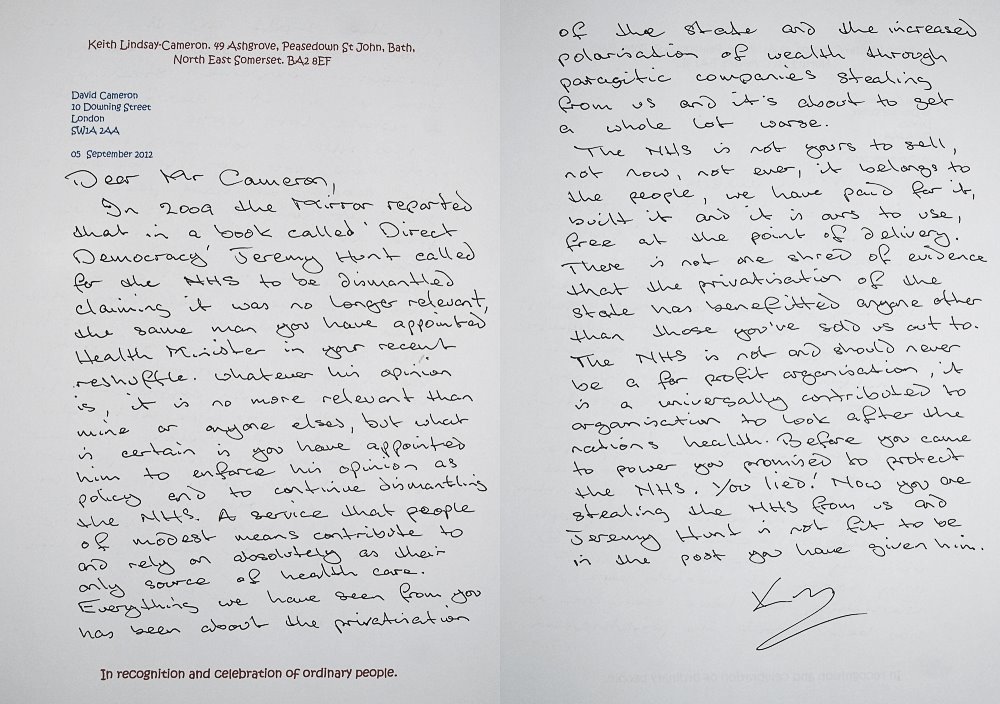 Keith Lindsay-Cameron. 49 Ashgrove, Peasedown St John, Bath,
North East Somerset. BA2 8EF
David Cameron
10 Downing Street
London
SW1A 2AA
05 September 2012
Dear Mr Cameron,
In 2009 the Mirror reported
that in a book called 'Direct
Democracy' Jeremy Hunt called
for the NHS to be dismantled
claiming it was no longer relevant,
the same man you have appointed
Health Minister in your recent
reshuffle. Whatever his opinion
is, it is no more relevant than
mine or anyone elses, but what
is certain is you have appointed
him to enforce his opinion as
policy and to continue dismantling
the NHS. A service that people
of modest means contribute to
and rely on absolutely as their
only source of health care.
Everything we have seen from you
has been about the privatisation
In recognition and celebration of ordinary people.
of the state and the increased
polarisation of wealth through
parasitic companies stealing
from us and it's about to get
a whole lot worse.
The NHS is not yours to sell,
not now, not ever, it belongs to
the people, we have paid for it,
built it and it is ours to use,
free at the point of delivery.
There is not one shred of evidence
that the privatisation of the
state has benefitted anyone other
than those you've sold us out to.
The NHS is not and should never
be a for profit organisation, it
is a universally contributed to
organisation to look after the
nations health. Before you came
to power you promised to protect
the NHS. You lied! Now you are
stealing the NHS from us and
Jeremy Hunt is not fit to be
in the post you have given him.